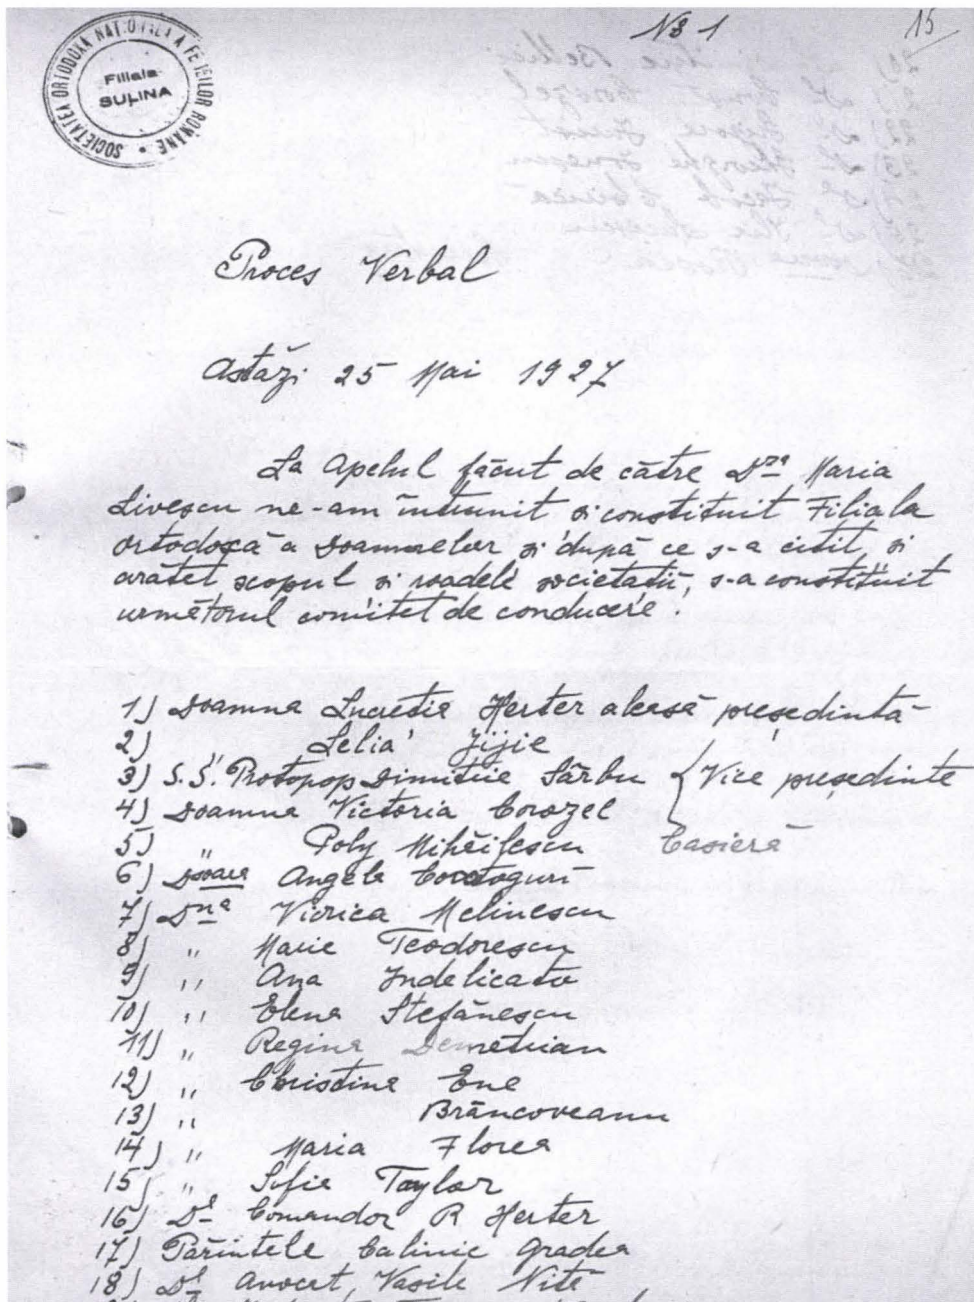 SOCIETATEA ORTODOXA NAȚIONALA A FEMEILOR ROMANE
Filiala
SULINA
№ 1
15
Proces Verbal
Astăzi 25 Mai 1927
La Apelul făcut de către Dna Maria
Livescu ne-am întrunit și constituit Filiala
ortodoxă a Doamnelor și după ce s-a citit și
arătat scopul și roadele societatii, s-a constituit
următorul comitet de conducere.
1) Doamna Lucretia Herter aleasă președintă
2) " Lelia Jijie
3) S.S. Protopop Dimitrie Sârbu { Vice președinte
4) Doamna Victoria Corozel
5) " Poly Mihăilescu Casieră
6) Dșoara Angela
7) Dna Viorica Melinescu
8) " Maria Teodorescu
9) " Ana Indelicato
10) " Elena Stefănescu
11) " Regina Demetrian
12) " Christina Ene
13) " Brâncoveanu
14) " Maria Florea
15) " Sofia Taylor
16) Dl Comandor R Herter
17) Părintele Calinic Gradea
18) Dl Avocat, Vasile Nită